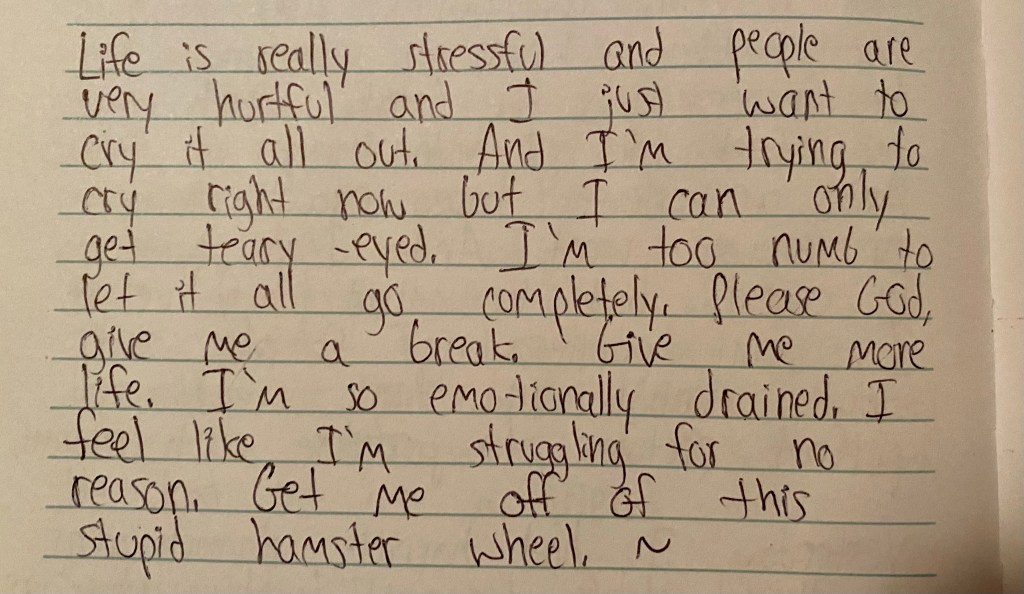 Life is really stressful and people are
very hurtful and I just want to
cry it all out. And I'm trying to
cry right now but I can only
get teary-eyed. I'm too numb to
let it all go completely. Please God,
give me a break. Give me more
life. I'm so emotionally drained. I
feel like I'm struggling for no
reason. Get me off of this
stupid hamster wheel. ~